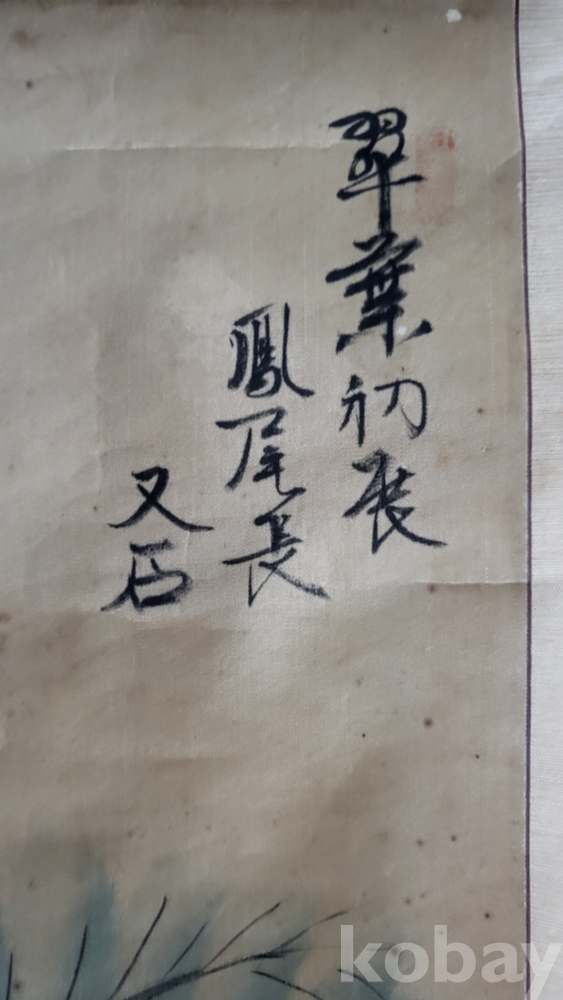 翠葉初展
鳳尾長
又石
kobay